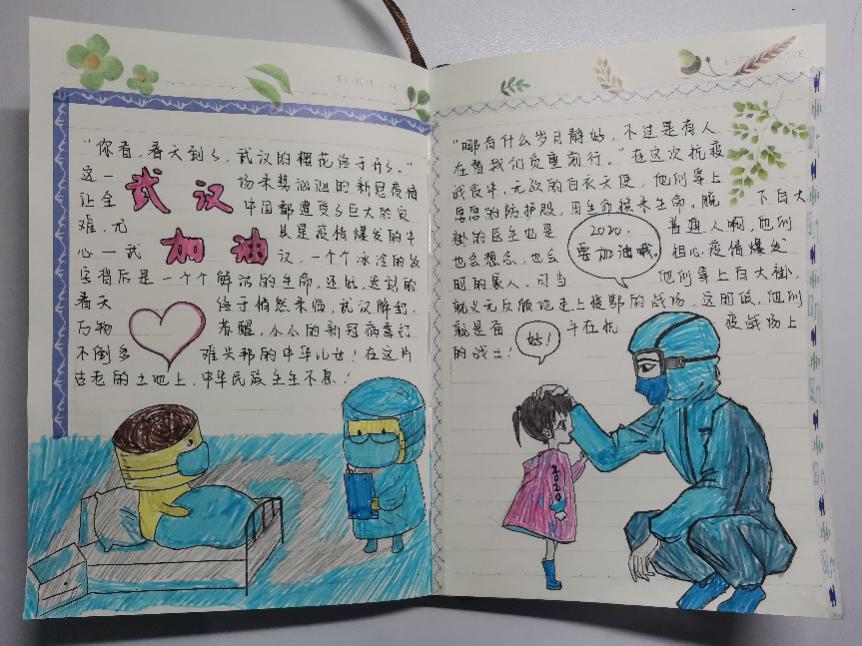 “你看，春天到了，武汉的樱花终于开了。”
这一场来势汹汹的新冠疫情
让全中国都遭受了巨大的灾
难，尤其是疫情爆发的中
心一武汉，一个个冰冷的数
字背后是一个个鲜活的生命，还好，迟到的
春天终于悄然来临，武汉解封，
万物春醒，小小的新冠病毒打
不倒多难兴邦的中华儿女！在这片
古老的土地上，中华民族生生不息！
武汉
加油
“哪有什么岁月静好，不过是有人
在替我们负重前行。”在这次抗疫
战役中，无数的白衣天使，他们穿上
厚厚的防护服，用生命接来生命。脱下白大
褂的医生也是普通人啊，他们
也会想念，也会担心疫情爆发
时的家人，可当他们穿上白大褂，
就义无反顾地走上援鄂的战场，这时候，他们
就是奋斗在抗疫战场上
的战士！
2020，
要加油哦。
好！
2020